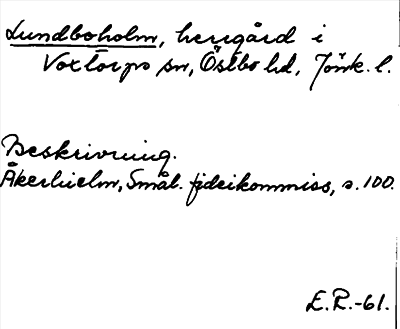 Lundboholm, herrgård i
Voxtorps sn, Östbo hd, Jönk. l.
Beskrivning.
Åkerhielm, Smål. fideikommiss, s. 100.
E.R.-61.